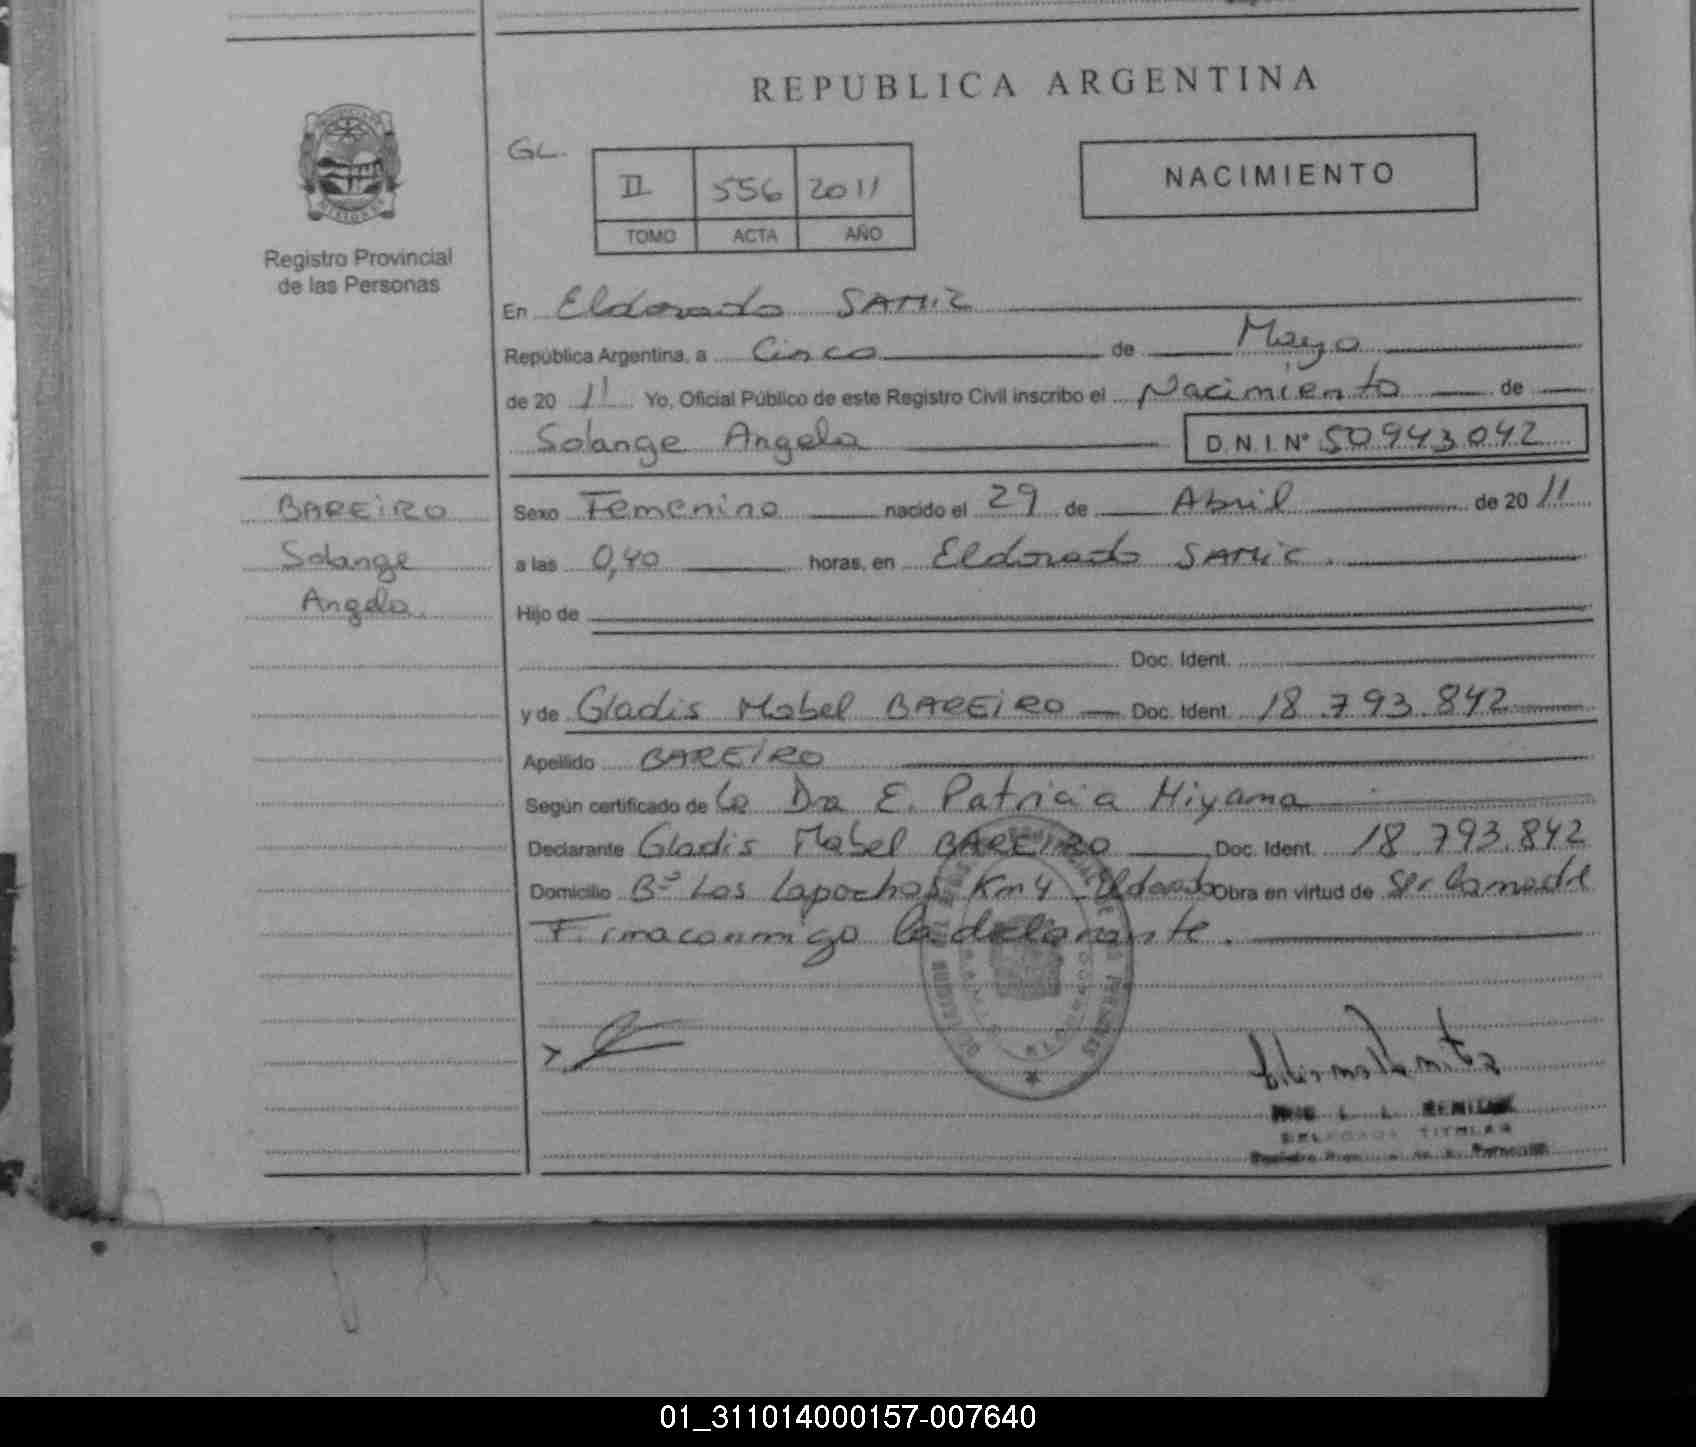 REPUBLICA ARGENTINA
GL.
II 556 2011
TOMO ACTA AÑO
NACIMIENTO
Registro Provincial
de las Personas
En Eldorado SAMIC
República Argentina, a Cinco de Mayo
de 20 11 Yo, Oficial Público de este Registro Civil inscribo el Nacimiento de
Solange Angela D.N.I. Nº 50943042
BAREIRO
Solange
Angela.
Sexo Femenino nacido el 29 de Abril de 20 11
a las 0,40 horas, en Eldorado SAMIC.
Hijo de
Doc. Ident.
y de Gladis Mabel BAREIRO Doc. Ident. 18.793.842
Apellido BAREIRO
Según certificado de la Dra E. Patricia Miyama
Declarante Gladis Mabel BAREIRO Doc. Ident. 18.793.842
Domicilio Bº Los Lapachos Km 4 Eldorado Obra en virtud de Ser la madre
Firma conmigo la declarante.
DELEGADA TITULAR
01_311014000157-007640